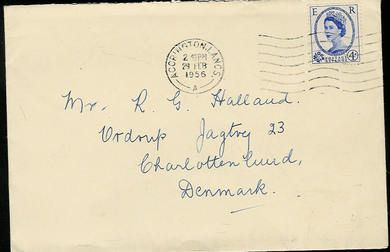 E R
POSTAGE
4D
ACCRINGTON, LANCS.
2-45PM
29 FEB
1956
A
Mr. R. G. Halland.
Ordrup Jagtvej 23
Charlottenlund,
Denmark.